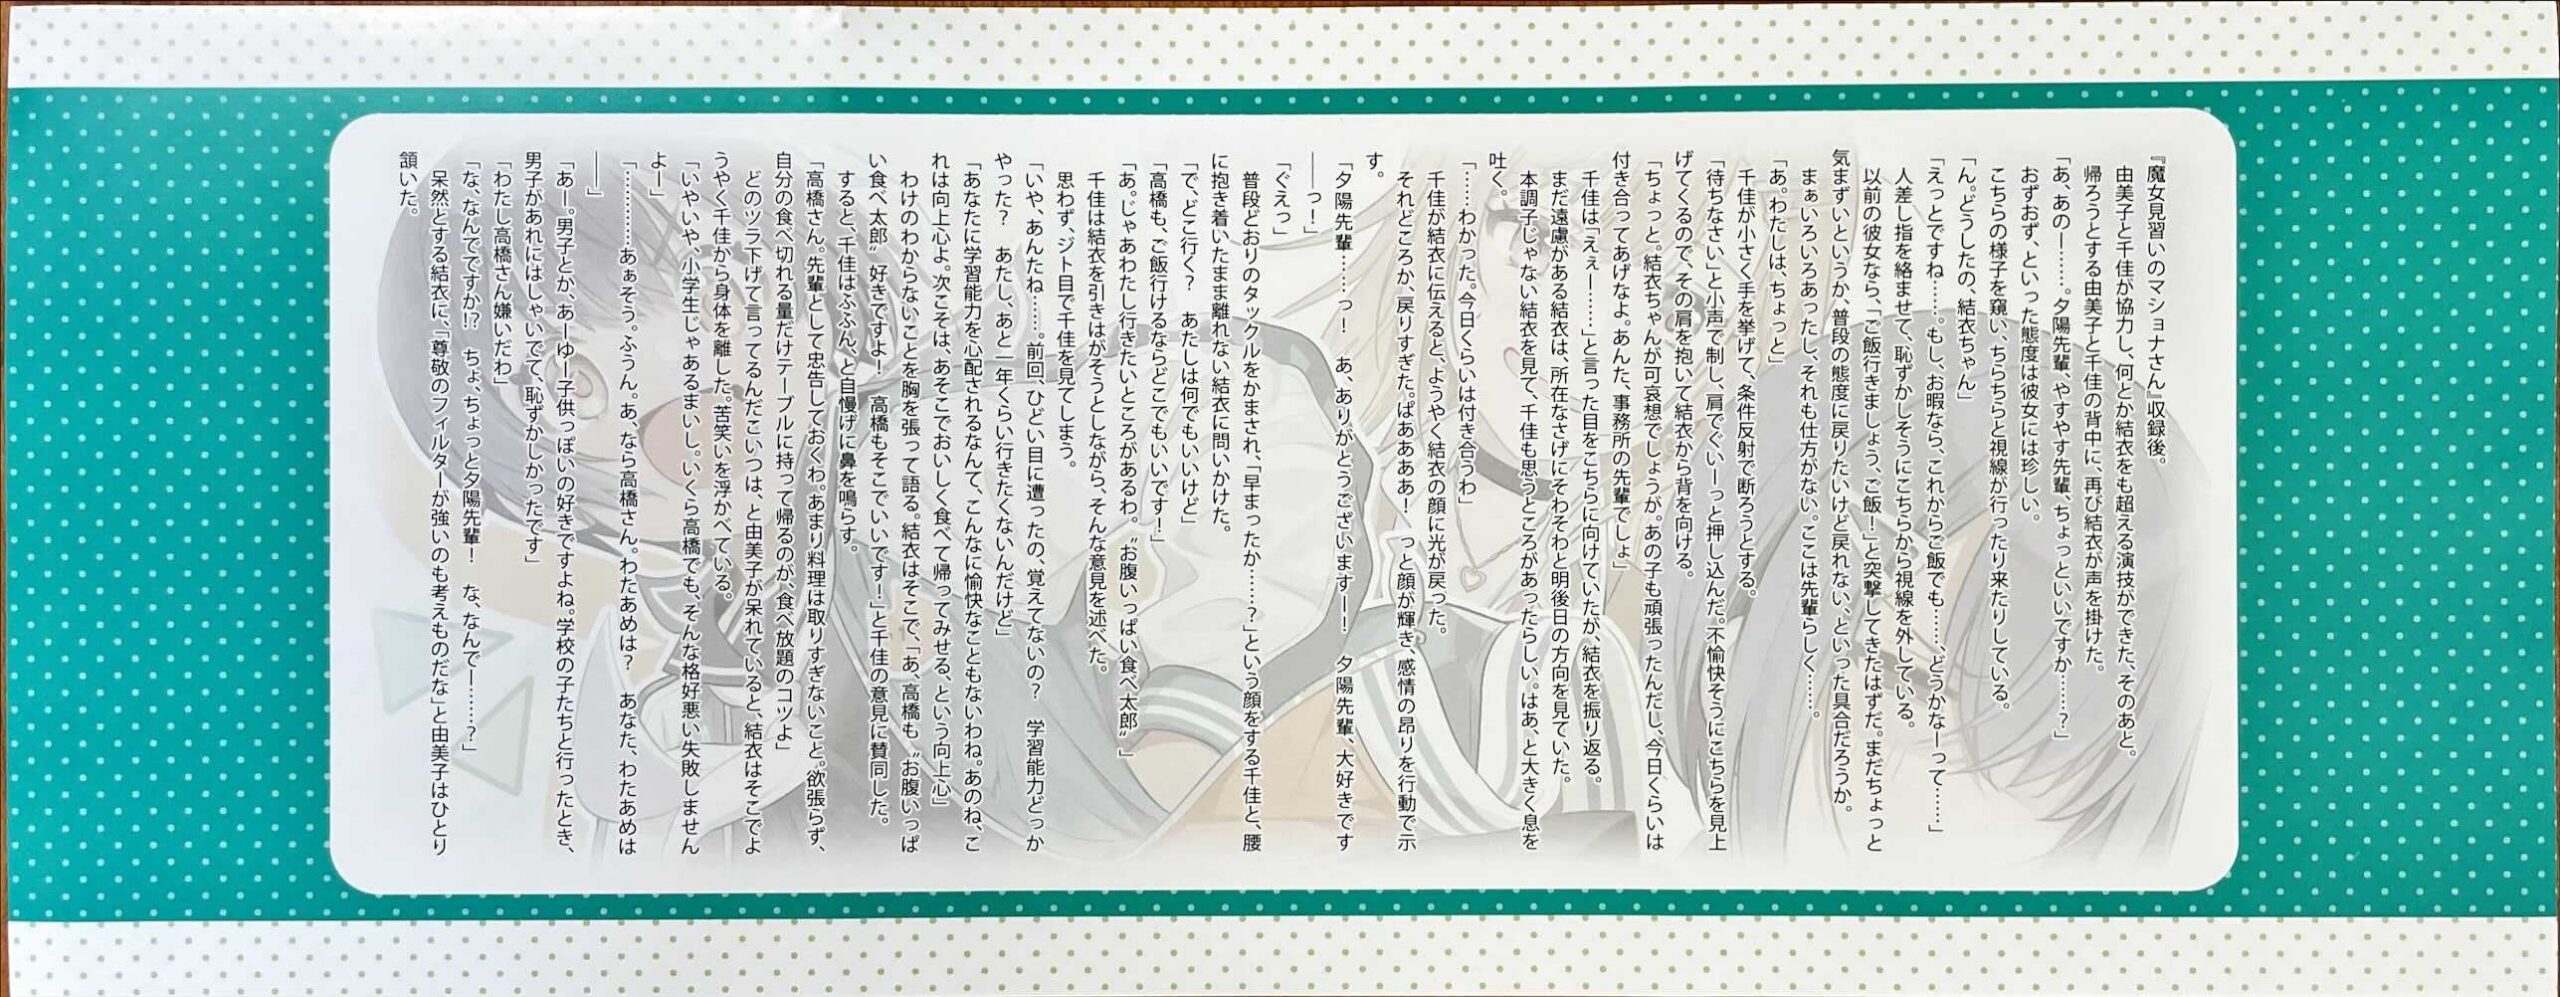 『魔女見習いのマショナさん』収録後。
由美子と千佳が協力し、何とか結衣をも超える演技ができた、そのあと。
帰ろうとする由美子と千佳の背中に、再び結衣が声を掛けた。
「あ、あのー……。夕陽先輩、やすやす先輩、ちょっといいですか……？」
おずおず、といった態度は彼女には珍しい。
こちらの様子を窺い、ちらちらと視線が行ったり来たりしている。
「ん。どうしたの、結衣ちゃん」
「えっとですね……。もし、お暇なら、これからご飯でも……、どうかなーって……」
人差し指を絡ませて、恥ずかしそうにこちらから視線を外している。
以前の彼女なら、「ご飯行きましょう、ご飯！」と突撃してきたはずだ。まだちょっと
気まずいというか、普段の態度に戻りたいけど戻れない、といった具合だろうか。
まぁいろいろあったし、それも仕方がない。ここは先輩らしく……。
「あ。わたしは、ちょっと」
千佳が小さく手を挙げて、条件反射で断ろうとする。
「待ちなさい」と小声で制し、肩でぐいーっと押し込んだ。不愉快そうにこちらを見上
げてくるので、その肩を抱いて結衣から背を向ける。
「ちょっと。結衣ちゃんが可哀想でしょうが。あの子も頑張ったんだし、今日くらいは
付き合ってあげなよ。あんた、事務所の先輩でしょ」
千佳は「えぇー……」と言った目をこちらに向けていたが、結衣を振り返る。
まだ遠慮がある結衣は、所在なさげにそわそわと明後日の方向を見ていた。
本調子じゃない結衣を見て、千佳も思うところがあったらしい。はあ、と大きく息を
吐く。
「……わかった。今日くらいは付き合うわ」
千佳が結衣に伝えると、ようやく結衣の顔に光が戻った。
それどころか、戻りすぎた。ぱああああ！　っと顔が輝き、感情の昂りを行動で示
す。
「夕陽先輩……っ！　あ、ありがとうございますー！　夕陽先輩、大好きです
――っ！」
「ぐえっ」
普段どおりのタックルをかまされ、「早まったか……？」という顔をする千佳と、腰
に抱き着いたまま離れない結衣に問いかけた。
「で、どこ行く？　あたしは何でもいいけど」
「高橋も、ご飯行けるならどこでもいいです！」
「あ。じゃあわたし行きたいところがあるわ。〝お腹いっぱい食べ太郎〟」
千佳は結衣を引きはがそうとしながら、そんな意見を述べた。
思わず、ジト目で千佳を見てしまう。
「いや、あんたね……。前回、ひどい目に遭ったの、覚えてないの？　学習能力どっか
やった？　あたし、あと一年くらい行きたくないんだけど」
「あなたに学習能力を心配されるなんて、こんなに愉快なこともないわね。あのね、こ
れは向上心よ。次こそは、あそこでおいしく食べて帰ってみせる、という向上心」
わけのわからないことを胸を張って語る。結衣はそこで、「あ、高橋も〝お腹いっぱ
い食べ太郎〟好きですよ！　高橋もそこでいいです！」と千佳の意見に賛同した。
すると、千佳はふふん、と自慢げに鼻を鳴らす。
「高橋さん。先輩として忠告しておくわ。あまり料理は取りすぎないこと。欲張らず、
自分の食べ切れる量だけテーブルに持って帰るのが、食べ放題のコツよ」
どのツラ下げて言ってるんだこいつは、と由美子が呆れていると、結衣はそこでよ
うやく千佳から身体を離した。苦笑いを浮かべている。
「いやいや、小学生じゃあるまいし。いくら高橋でも、そんな格好悪い失敗しません
よー」
「…………あぁそう。ふうん。あ、なら高橋さん。わたあめは？　あなた、わたあめは
――」
「あー。男子とか、あーゆー子供っぽいの好きですよね。学校の子たちと行ったとき、
男子があれにはしゃいでて、恥ずかしかったです」
「わたし高橋さん嫌いだわ」
「な、なんでですか!?　ちょ、ちょっと夕陽先輩！　な、なんでー……？」
呆然とする結衣に、「尊敬のフィルターが強いのも考えものだな」と由美子はひとり
頷いた。